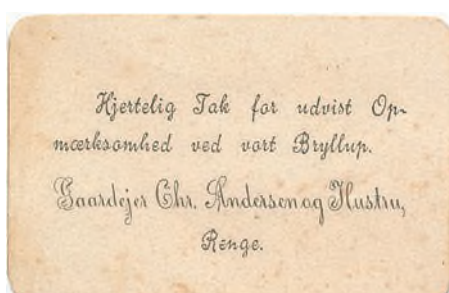 Hjertelig Tak for udvist Op-
mærksomhed ved vort Bryllup.
Gaardejer Chr. Andersen og Hustru,
Renge.